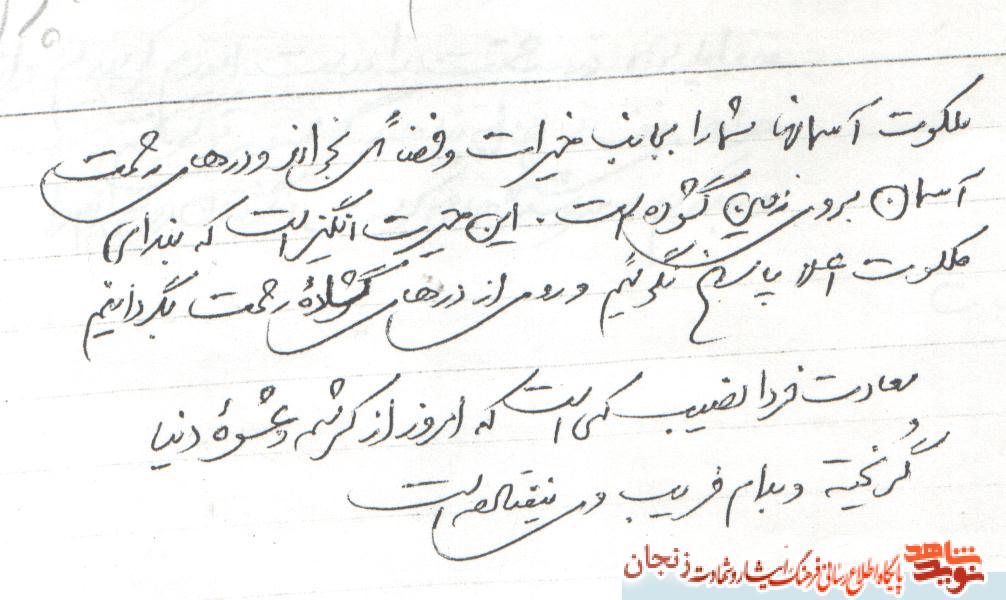 ملکوت آسمانها شما را بجانب خیرات و فضائل میخواند و درهای رحمت
آسمان بروی زمین گشوده است. این حیرت انگیز است که بندای
ملکوت اعلا پاسخ نگوئیم و روی از درهای گشادهٔ رحمت بگردانیم
سعادت فردا نصیب کسی است که امروز از کرشمه و عشوهٔ دنیا
گریخته و بدام فریب وی نیفتاده است
نوید شاهد
پایگاه اطلاع رسانی فرهنگ ایثار و شهادت زنجان